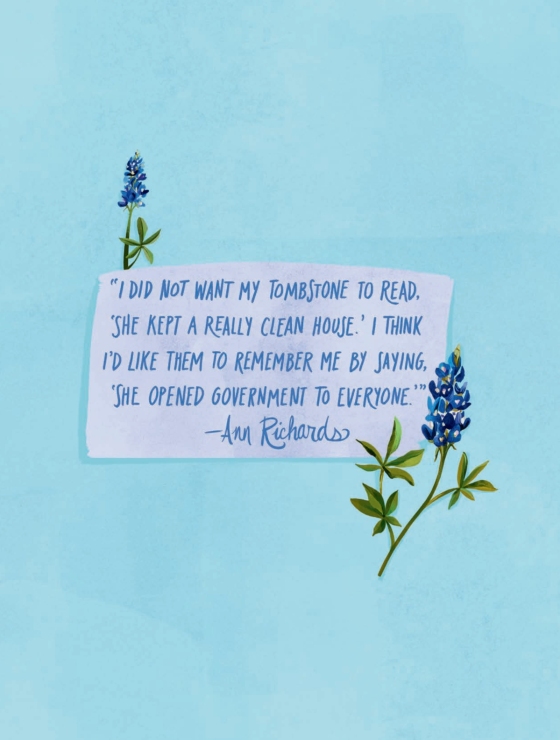 "I DID NOT WANT MY TOMBSTONE TO READ,
'SHE KEPT A REALLY CLEAN HOUSE.' I THINK
I'D LIKE THEM TO REMEMBER ME BY SAYING,
'SHE OPENED GOVERNMENT TO EVERYONE.'"
—Ann Richards